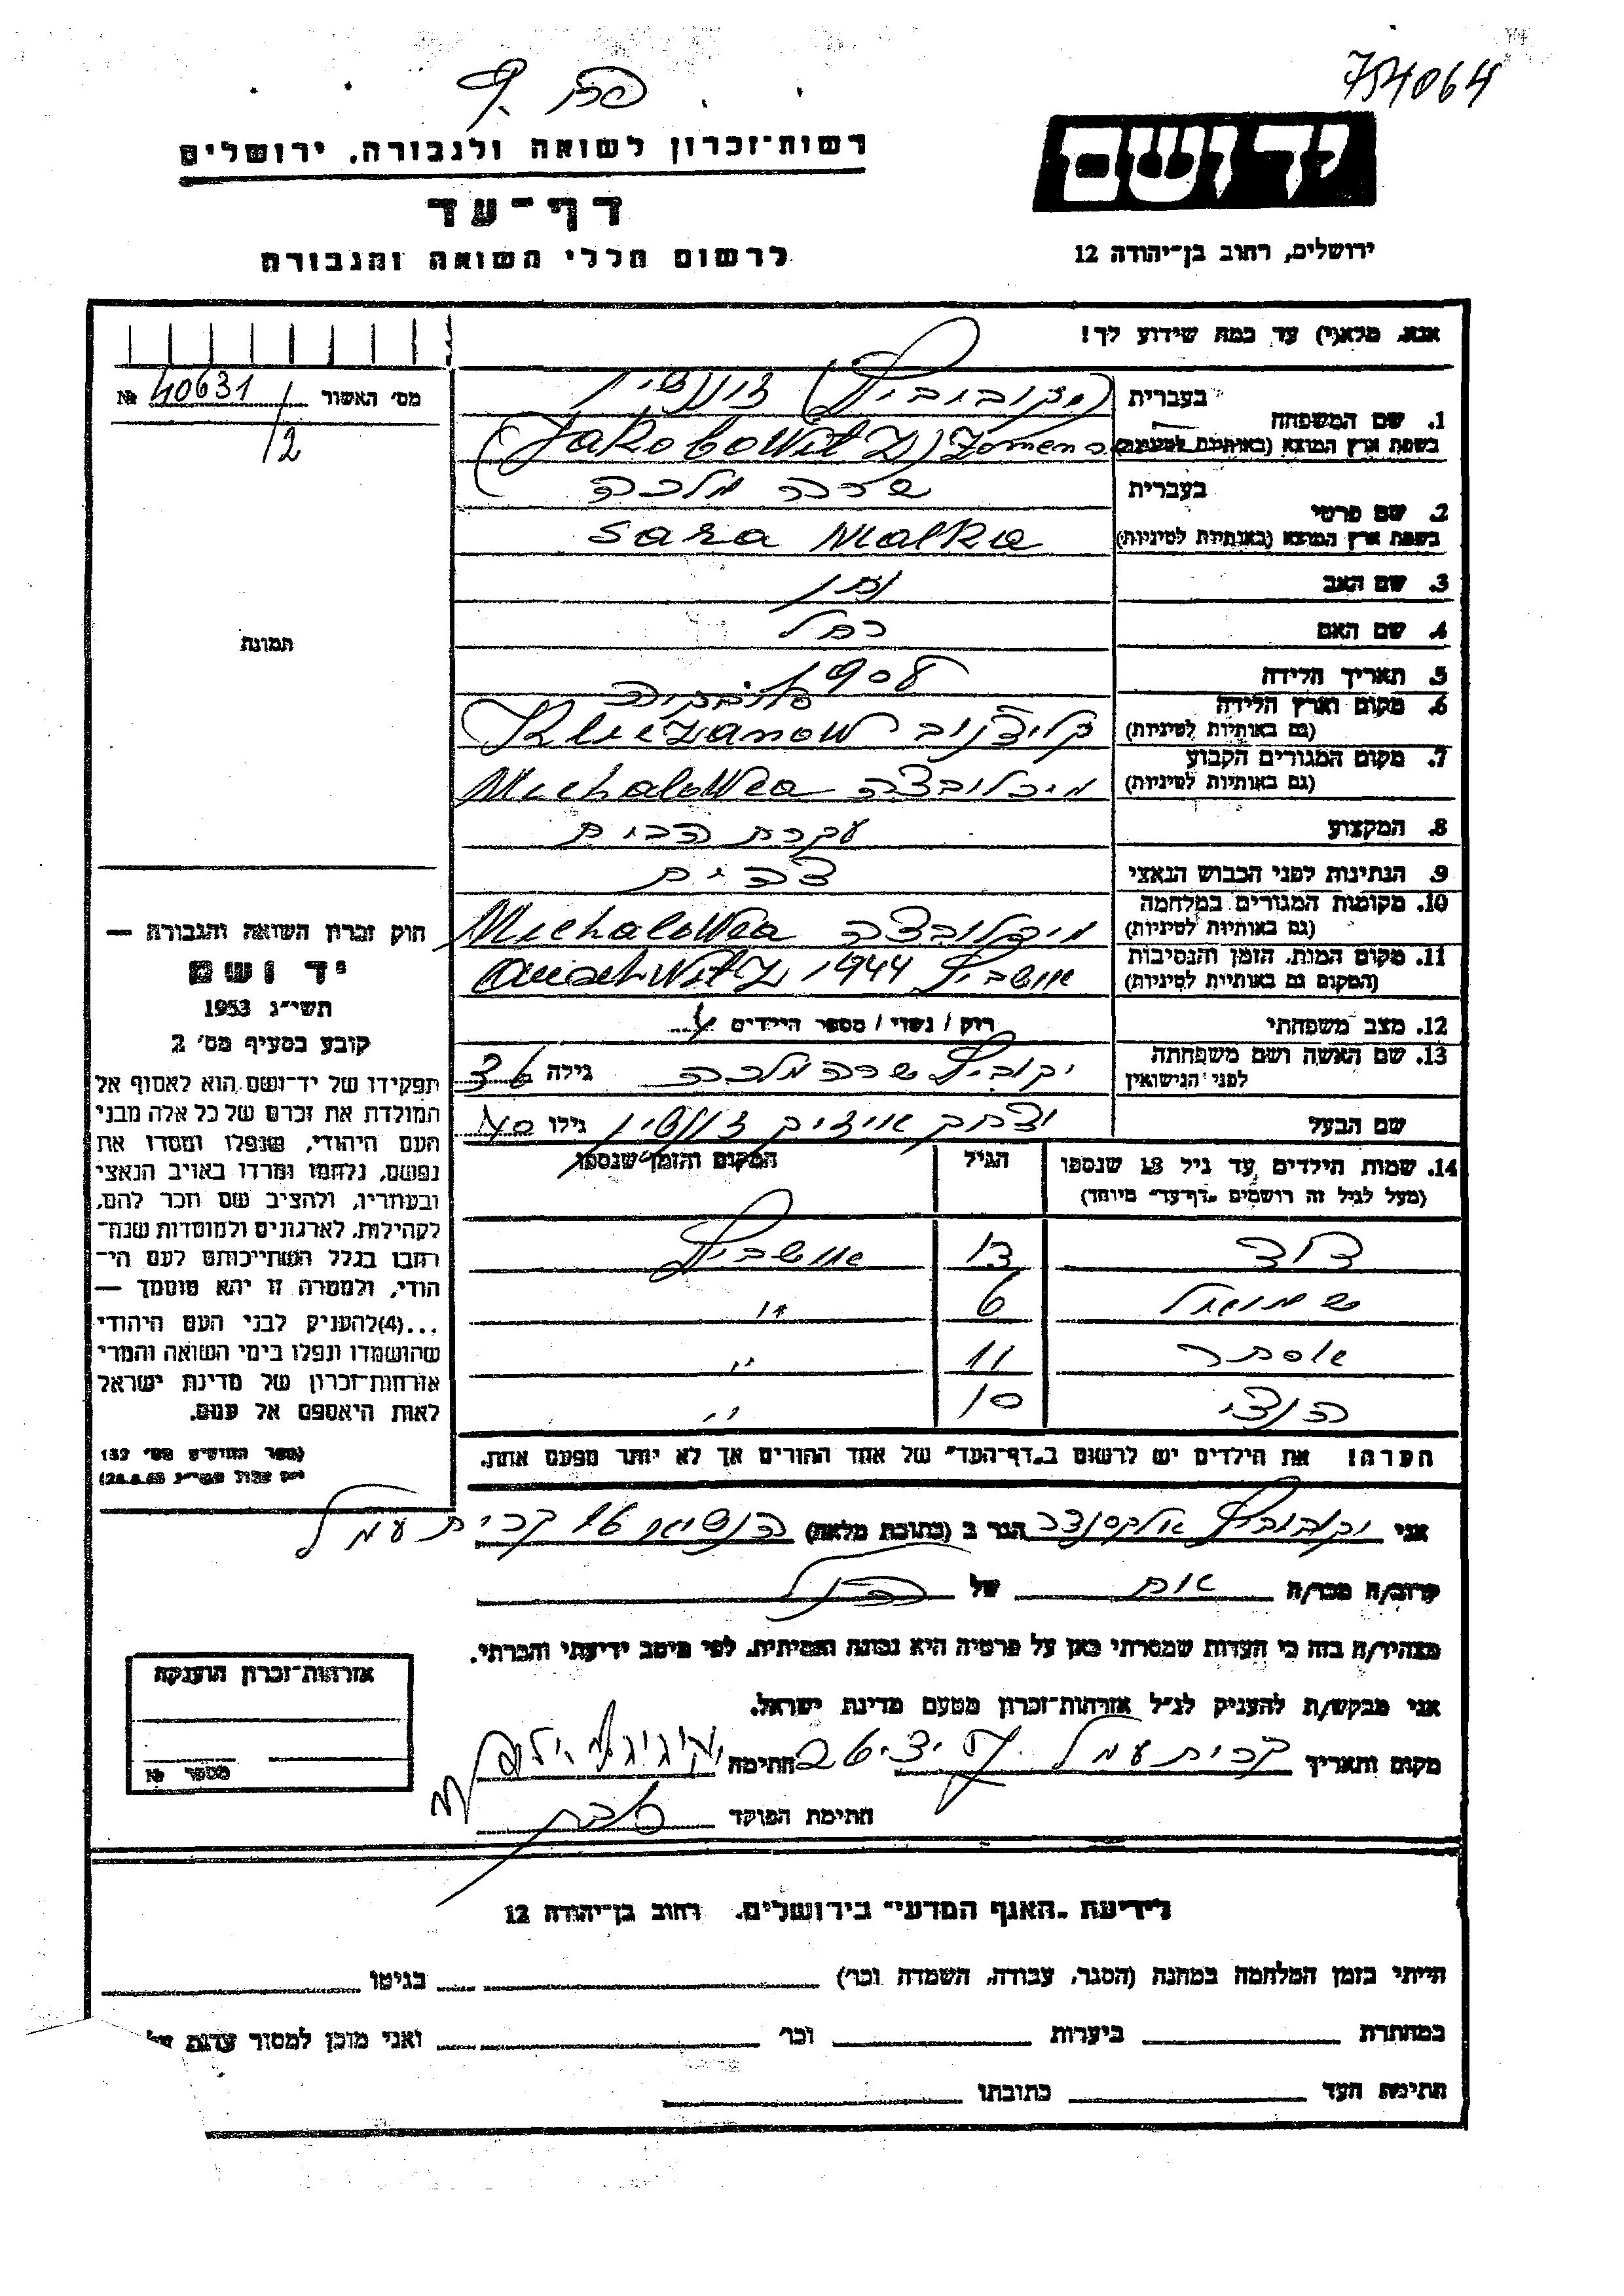 754064
רשות־זכרון לשואה ולגבורה, ירושלים
דף־עד
לרשום חללי השואה והגבורה
יד ושם
ירושלים, רחוב בן־יהודה 12
אנא, מלא(י) עד כמה שידוע לך!
מס' האשור № 40631/2
תמונה
חוק זכרון השואה והגבורה —
יד ושם
תשי״ג 1953
קובע בסעיף מס׳ 2
תפקידו של יד־ושם הוא לאסוף אל
המולדת את זכרם של כל אלה מבני
העם היהודי, שנפלו ומסרו את
נפשם, נלחמו ומרדו באויב הנאצי
ובעוזריו, ולהציב שם וזכר להם,
לקהילות, לארגונים ולמוסדות שנח־
רבו בגלל השתייכותם לעם הי־
הודי, ולמטרה זו יהא מוסמך —
...(4)להעניק לבני העם היהודי
שהושמדו ונפלו בימי השואה והמרי
אזרחות־זכרון של מדינת ישראל
לאות היאספם אל עמם.
1. שם המשפחה
בעברית (יעקובוביץ)
בשפת ארץ המוצא (באותיות לטיניות) (Jakobowitz)
2. שם פרטי
בעברית שרה מלכה
בשפת ארץ המוצא (באותיות לטיניות) Sara Malka
3. שם האב נתן
4. שם האם רחל
5. תאריך הלידה 1908
6. מקום וארץ הלידה
(גם באותיות לטיניות)
7. מקום המגורים הקבוע
(גם באותיות לטיניות) מיכלובצה Michalowea
8. המקצוע עקרת הבית
9. הנתינות לפני הכבוש הנאצי
10. מקומות המגורים במלחמה
(גם באותיות לטיניות) מיכלובצה Michalowea
11. מקום המות, הזמן והנסיבות
(המקום גם באותיות לטיניות) אושביץ 1944 Auschwitz
12. מצב משפחתי רווק / נשוי / מספר הילדים 4
13. שם האשה ושם משפחתה
לפני הנישואין יקוביץ שרה מלכה גילה 36
שם הבעל גילו 40
14. שמות הילדים עד גיל 18 שנספו
(מעל לגיל זה רושמים „דף־עד״ מיוחד)
הגיל
המקום והזמן שנספו
דוד 13 אושביץ
שמואל 6 ״
אסתר 11 ״
הנצי 10 ״
הערה! את הילדים יש לרשום ב„דף־העד״ של אחד ההורים אך לא יותר מפעם אחת.
אני יקובוביץ אלכסנדר הגר ב (כתובת מלאה) הנשיא 16 קרית עמל
קרוב/ה מכר/ה אח של הנ״ל
מצהיר/ה בזה כי העדות שמסרתי כאן על פרטיה היא נכונה ואמיתית, לפי מיטב ידיעתי והכרתי.
אני מבקש/ת להעניק לנ״ל אזרחות־זכרון מטעם מדינת ישראל.
מקום ותאריך קרית עמל חתימה
חתימת הפוקד
אזרחות־זכרון הוענקה
מספר №
לידיעת „האגף המדעי״ בירושלים, רחוב בן־יהודה 12
הייתי בזמן המלחמה במחנה (הסגר, עבודה, השמדה וכו׳) בגיטו
במחתרת ביערות וכו׳ ואני מוכן למסור עדות
חתימת העד כתובתו